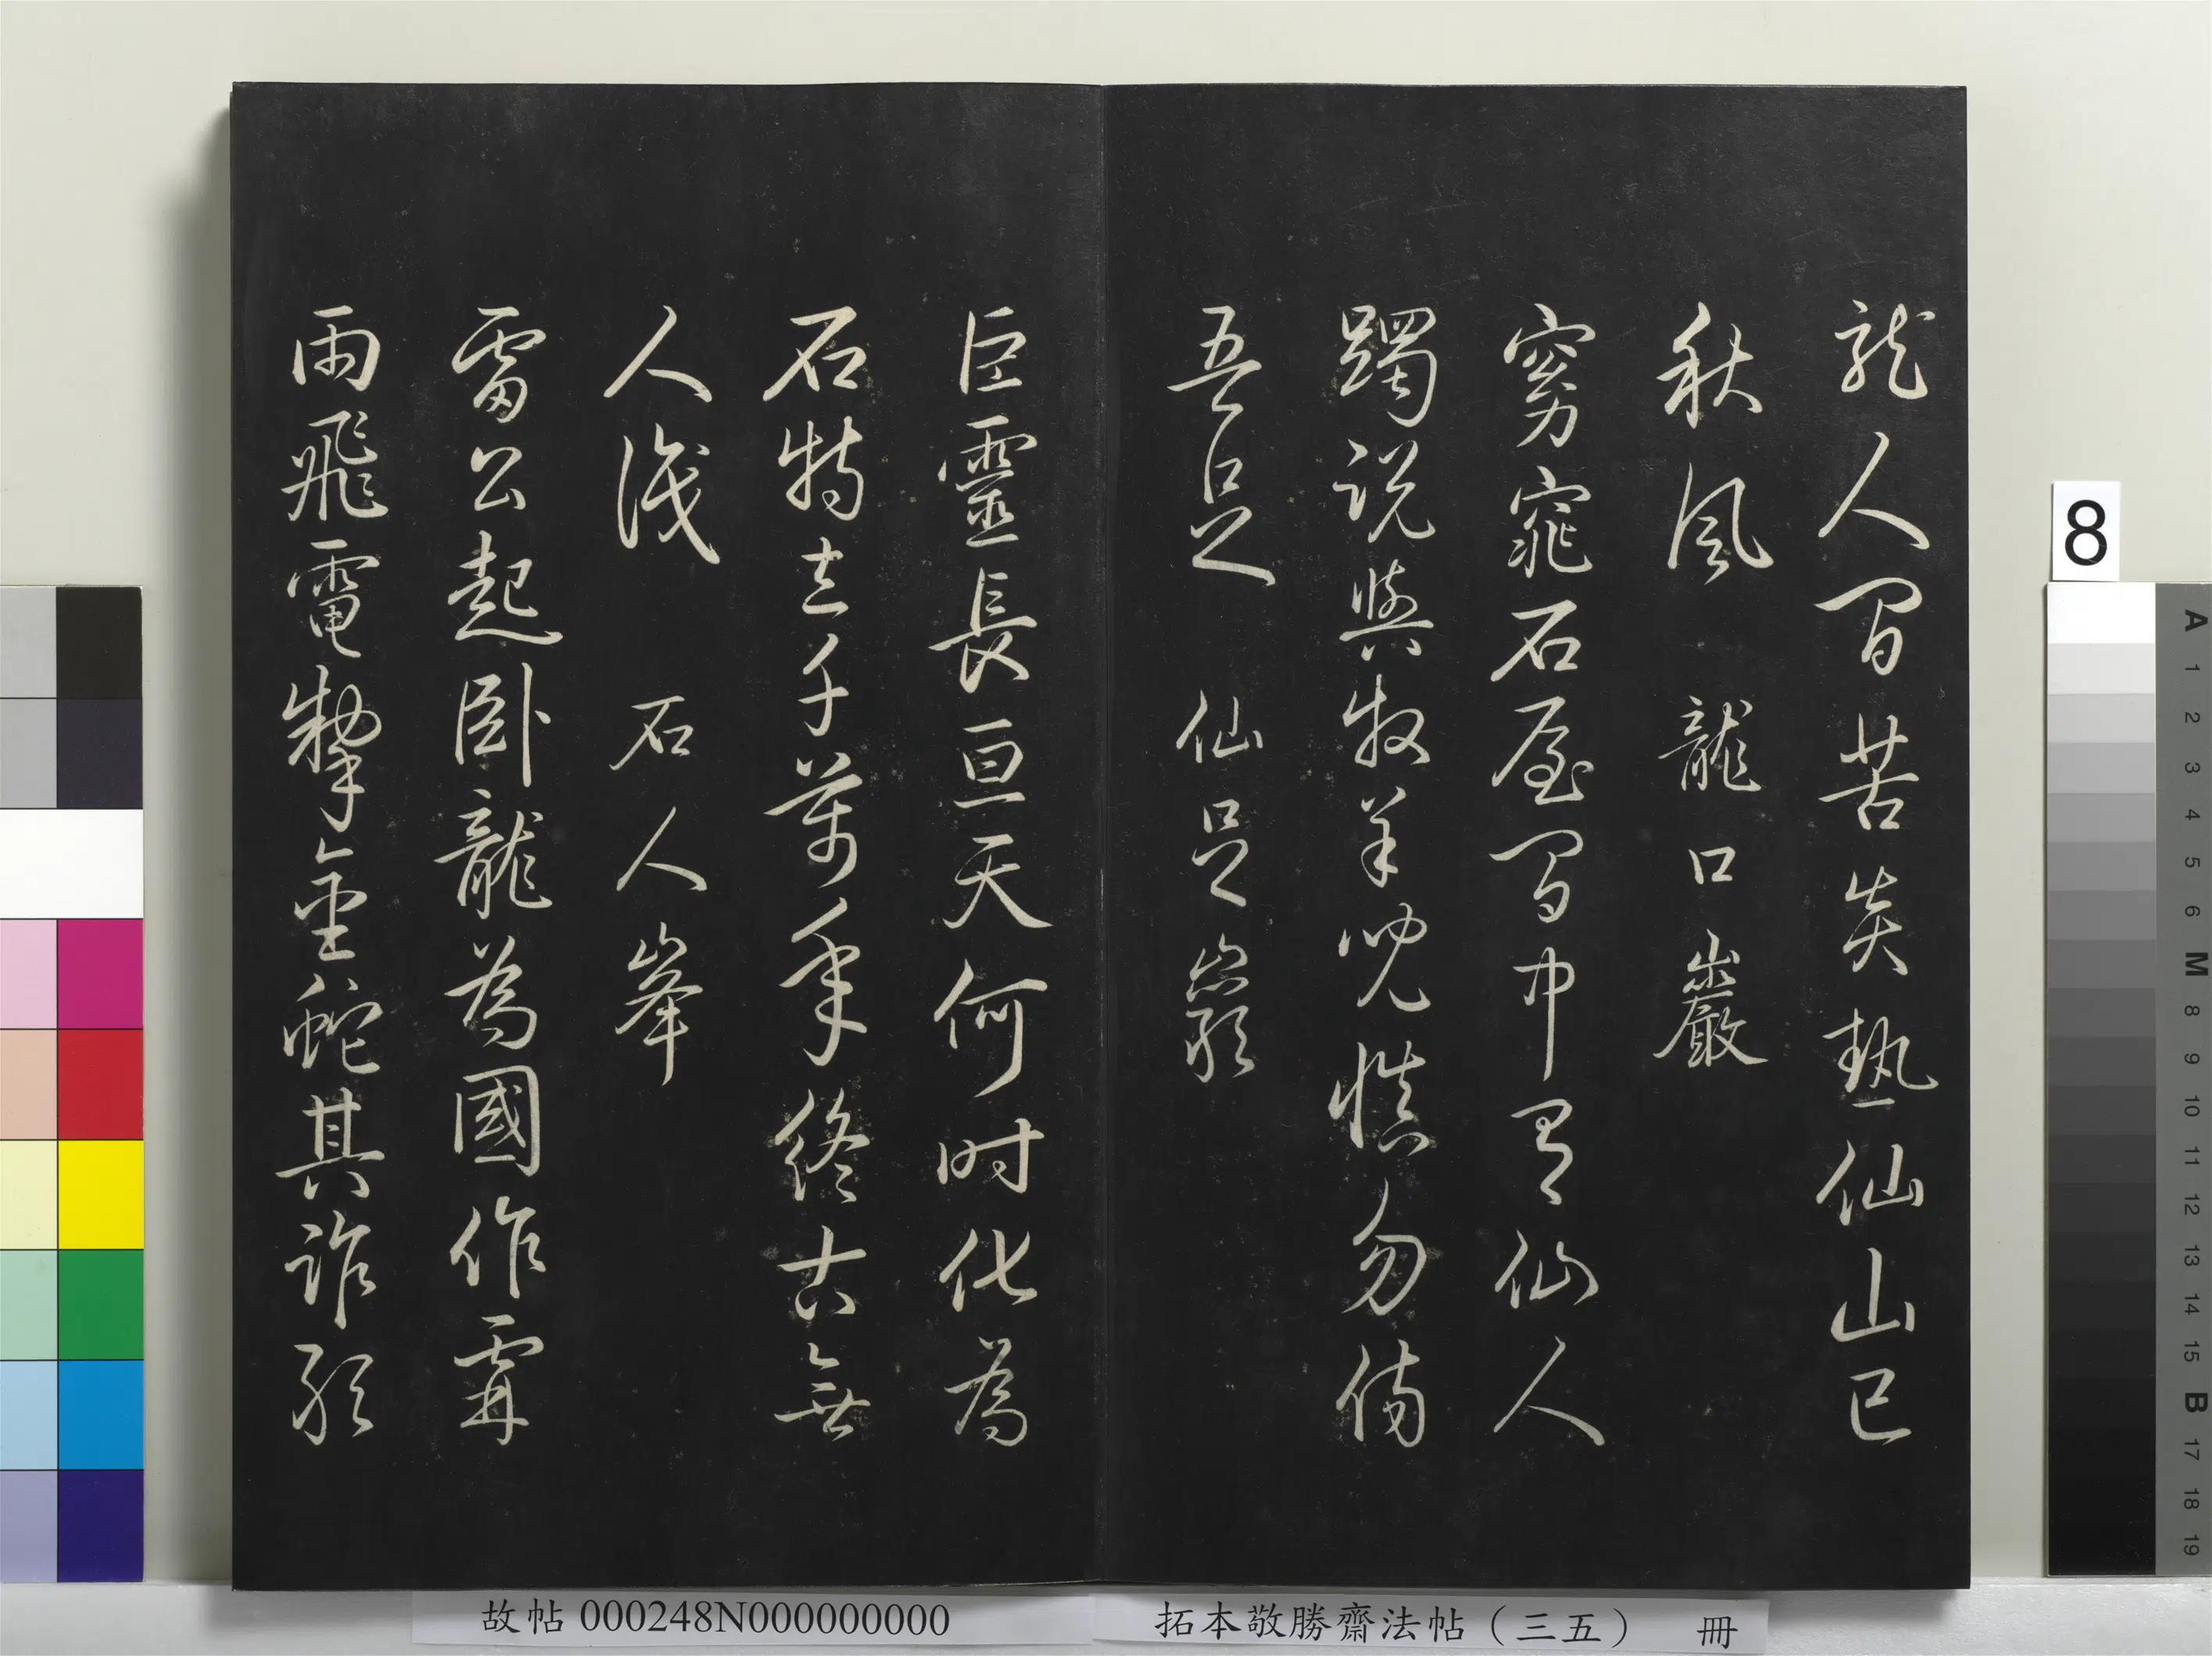 龍人間苦炎熱仙山已
秋風 龍口巖
窈窕石屋間中有仙人
躅説與牧羊兒慎勿傷
吾足 仙足巖
巨靈長亘天何時化為
石特立千萬年終古無
人識 石人峯
雷公起卧龍為國作霖
雨飛電掣金蛇其誰敢
故帖 000248N000000000
拓本敬勝齋法帖（三五） 冊
8
A 1 2 3 4 5 6 M 8 9 10 11 12 13 14 15 B 17 18 19